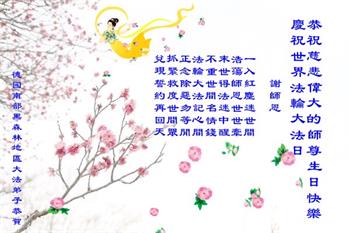 恭祝慈悲偉大的師尊生日快樂
慶祝世界法輪大法日
謝師恩
一入紅塵迷世間
浩蕩師恩世世牽
末世得法迷中醒
不重名情錢
法輪大法記心間
正念除惡勿等閒
抓緊救度世間眾
兌現誓約再回天
德國南部黑森林地區大法弟子恭賀